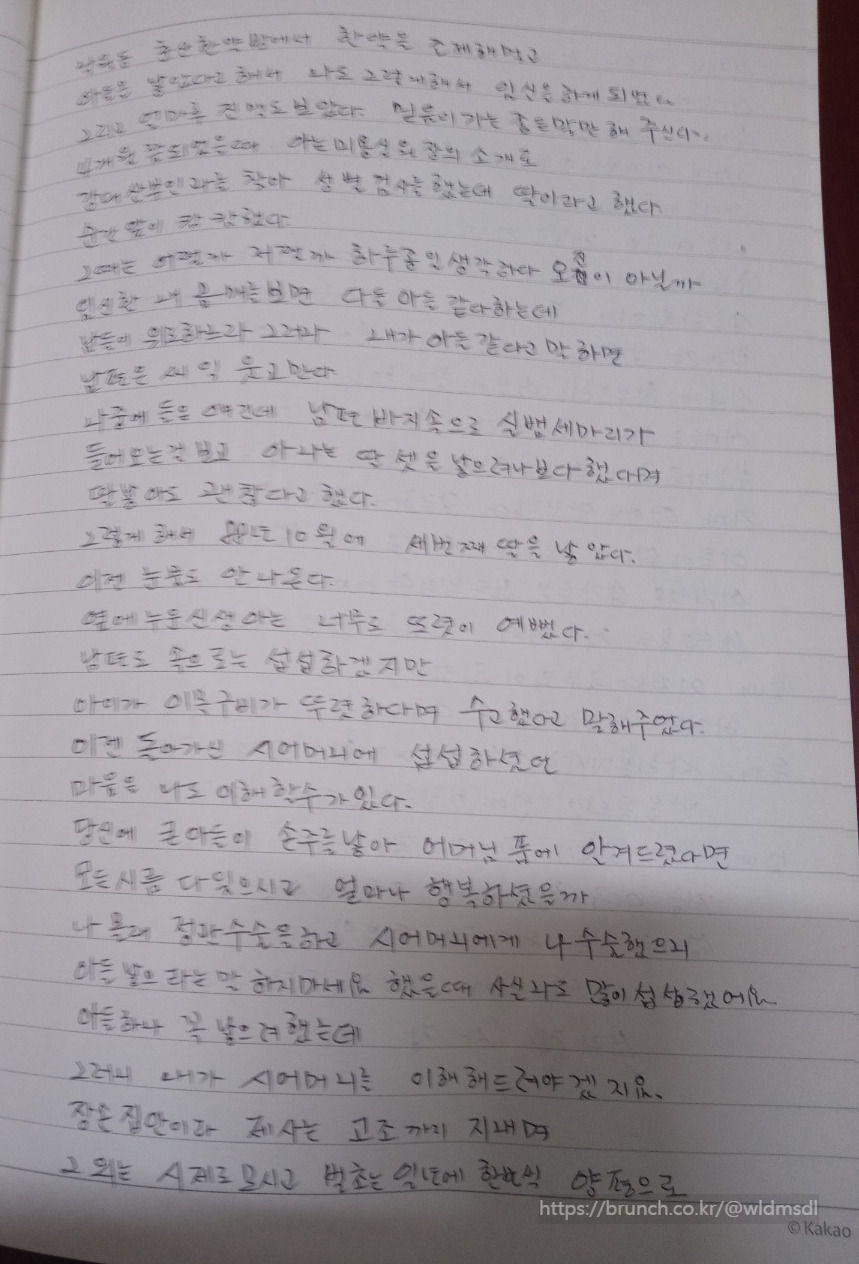 춘산한약방에서 한약을 조제해먹고
아들을 낳았다고 해서 나도 그렇게해서 임신을 하게 되었다
그리고 진맥도 보았다. 믿음이가는 좋은말만 해 주신다.
4개월 쯤되었을때 아는미용실원장의 소개로
강대산부인과를 찾아 성별검사를했는데 딸이라고 했다.
순간 앞에 캄캄했다.
그때는 어쩔까 저쩔까 하루종일생각하다 오진이 아닐까
임신한 내 몸매를보면 다들 아들 같다하는데
남들에 위로하느라 그러나 내가 아들같다고 말하면
남편은 씨익 웃고만다
나중에 들은 얘긴데 남편 바지속으로 실뱀세마리가
들어오는걸 보고 아 나는 딸 셋을 낳으려나보다 했다며
딸낳아도 괜찮다고 했다.
그렇게 해서 년 10월에 세번째 딸을 낳았다.
이젠 눈물도 안나온다.
옆에누운신생아는 너무도 또렷이 예뻤다.
남편도 속으로는 섭섭하겠지만
아이가 이목구비가 뚜렷하다며 수고했다고 말해주었다.
이젠 돌아가신 시어머니에 섭섭하셧던
마음은 나도 이해할수가있다.
당신에 큰아들이 손주를낳아 어머님 품에 안겨드렸다면
모든시름 다잊으시고 얼마나 행복하셨을까
나 몰래 정관수술을하고 시어머니에게 나 수술했으니
아들낳으라는말 하지마세요 했을때 사실 나도 많이 섭섭했어요
아들하나 꼭 낳으려했는데
그러니 내가 시어머니를 이해해드려야겠지요.
장손집안이라 제사는 고조까지 지내며
그 외는 시제로모시고 벌초는 일년에 한번씩 양평으로
https://brunch.co.kr/@wldmsdl
©Kakao